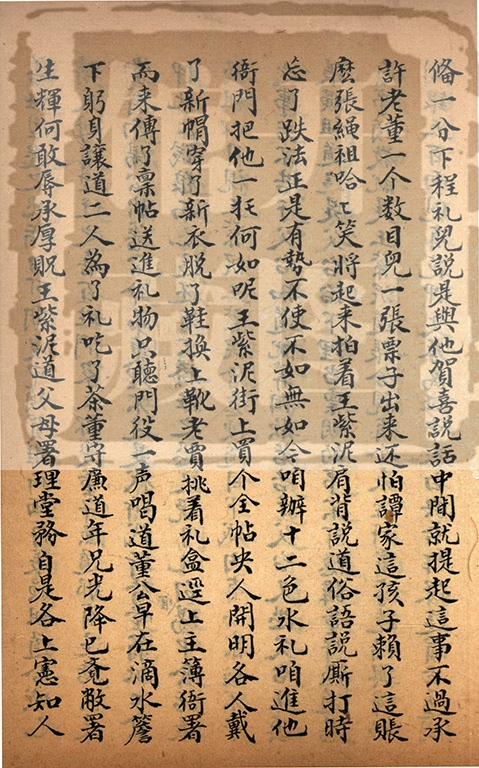 俻一分下程礼兒説是與他賀喜説話中間就提起這事不過承
許老董一个数目兒一張票子出来还怕譚家這孩子賴了這賬
麽張繩祖哈〻笑将起来拍着王紫泥肩背説道俗語説厮打時
忘了跌法正是有勢不使不如無如今咱辦十二色水礼咱進他
衙門把他一抂何如呢王紫泥街上買个全帖央人開明各人戴
了新帽穿了新衣脱了鞋換上靴老賈挑着礼盒逕上主薄衙署
而来傳了禀帖送進礼物只聽門役一声喝道董公早在滴水簷
下躬身讓道二人為了礼吃了茶董守廉道年兄光降已覔敝署
生輝何敢辱承厚貺王紫泥道父母署理堂務自是各上憲知人